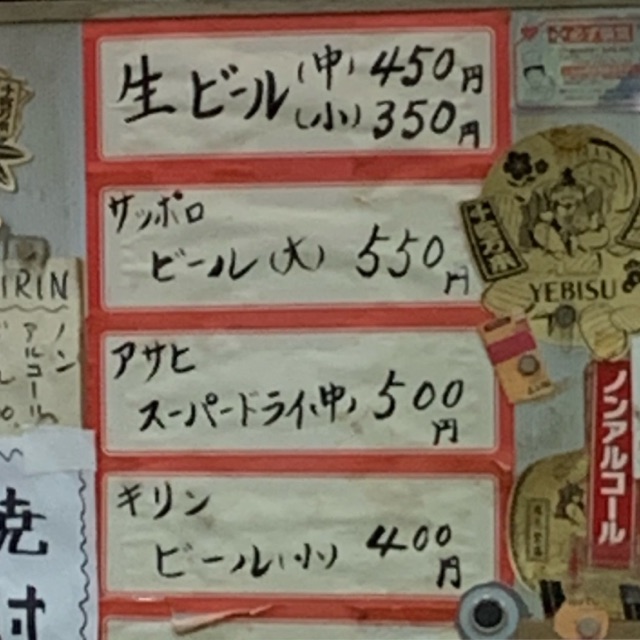 生ビール(中)450円
(小)350円
サッポロ
ビール(大) 550円
アサヒ
スーパードライ(中) 500円
キリン
ビール(小) 400円
YEBISU
ノンアルコール
IRIN
ノン
アルコール
焼